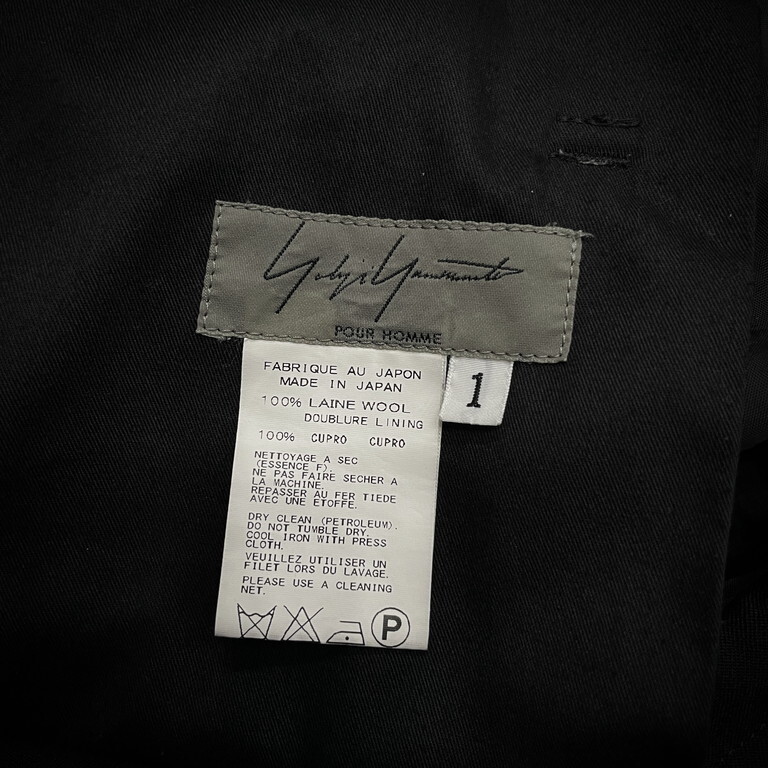 Yohji Yamamoto
POUR HOMME
1
FABRIQUE AU JAPON
MADE IN JAPAN
100% LAINE WOOL
DOUBLURE LINING
100% CUPRO CUPRO
NETTOYAGE A SEC
(ESSENCE F).
NE PAS FAIRE SECHER A
LA MACHINE.
REPASSER AU FER TIEDE
AVEC UNE ETOFFE.
DRY CLEAN (PETROLEUM).
DO NOT TUMBLE DRY.
COOL IRON WITH PRESS
CLOTH.
VEUILLEZ UTILISER UN
FILET LORS DU LAVAGE.
PLEASE USE A CLEANING
NET.
P